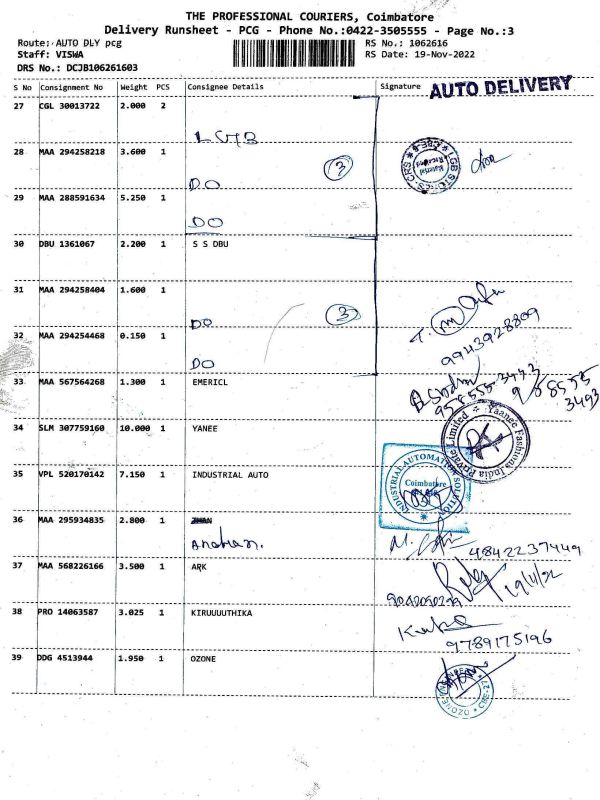 THE PROFESSIONAL COURIERS, Coimbatore
Delivery Runsheet - PCG - Phone No.:0422-3505555 - Page No.:3
Route: AUTO DLY pcg
RS No.: 1062616
Staff: VISWA
RS Date: 19-Nov-2022
DRS No.: DCJB106261603
S No Consignment No Weight PCS Consignee Details Signature AUTO DELIVERY
27 CGL 30013722 2.000 2
LGB
28 MAA 294258218 3.600 1
3
DO
29 MAA 288591634 5.250 1
DO
30 DBU 1361067 2.200 1 S S DBU
31 MAA 294258404 1.600 1
DO
3
9943928809
32 MAA 294254468 0.150 1
DO
33 MAA 567564268 1.300 1 EMERICL
34 SLM 307759160 10.000 1 YANEE
Yaanee Fashions India Private Limited
35 VPL 520170142 7.150 1 INDUSTRIAL AUTO
INDUSTRIAL AUTOMATION SOLUTION
Coimbatore
36 MAA 295934835 2.800 1
4842237449
37 MAA 568226166 3.500 1 ARK
19/11/22
38 PRO 14063587 3.025 1 KIRUUUUTHIKA
9789175196
39 DDG 4513944 1.950 1 OZONE